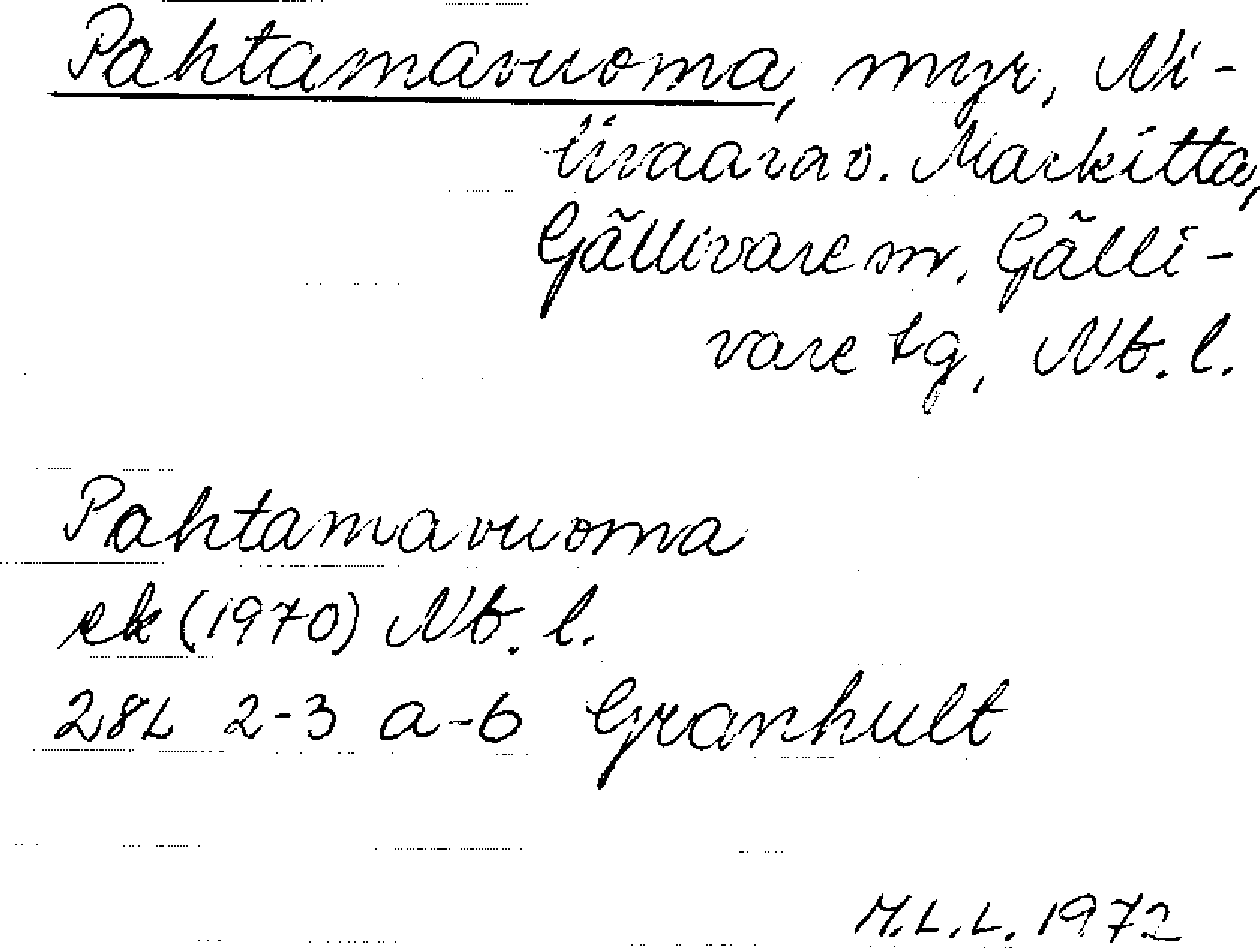 Pahtamavuoma, myr, Ni-
livaara o. Markitta,
Gällivare sn, Gälli-
vare tg, Nb. l.
Pahtamavuoma
ek (1970) Nb. l.
28L 2-3 a-b Granhult
M.L.L. 1972